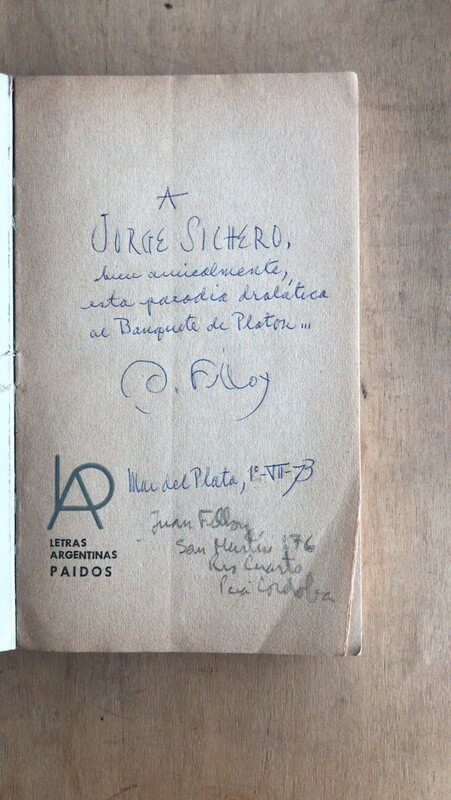 A
JORGE SICHERO,
bien amicalmente,
esta parodia dralática
al Banquete de Platon...
J. Filloy
Mar del Plata, 1º-VII-73
LAP
LETRAS
ARGENTINAS
PAIDOS
Juan Filloy
San Martín 176
Rio Cuarto
Córdoba